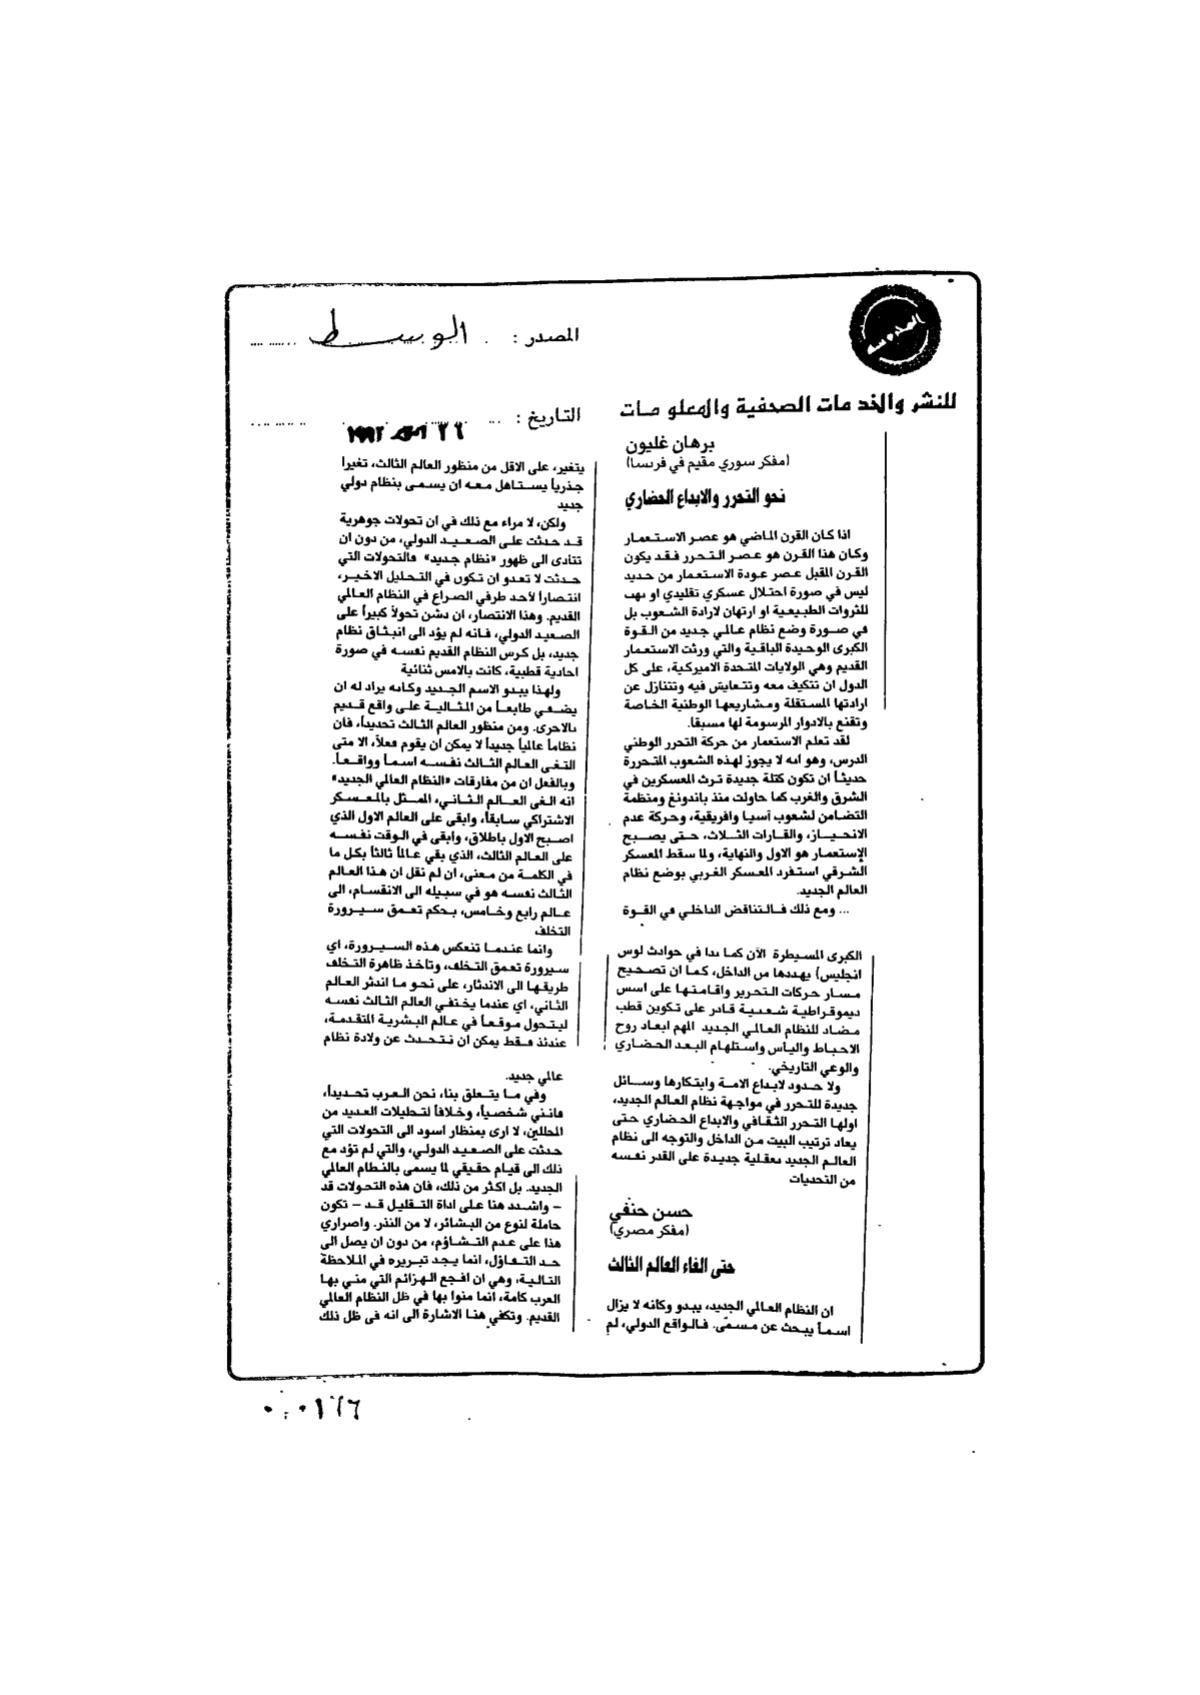 المصدر : الوسط
للنشر والخدمات الصحفية والمعلومات
التاريخ :
٢٦ ١٩٩٢
برهان غليون
(مفكر سوري مقيم في فرنسا)
نحو التحرر والابداع الحضاري
اذا كان القرن الماضي هو عصر الاستعمار
وكان هذا القرن هو عصر التحرر فقد يكون
القرن المقبل عصر عودة الاستعمار من جديد
ليس في صورة احتلال عسكري تقليدي او نهب
للثروات الطبيعية او ارتهان لارادة الشعوب بل
في صورة وضع نظام عالمي جديد من القوة
الكبرى الوحيدة الباقية والتي ورثت الاستعمار
القديم وهي الولايات المتحدة الاميركية، على كل
الدول ان تتكيف معه وتتعايش فيه وتتنازل عن
ارادتها المستقلة ومشاريعها الوطنية الخاصة
وتقنع بالادوار المرسومة لها مسبقا.
لقد تعلم الاستعمار من حركة التحرر الوطني
الدرس، وهو انه لا يجوز لهذه الشعوب المتحررة
حديثاً ان تكون كتلة جديدة ترث المعسكرين في
الشرق والغرب كما حاولت منذ باندونغ ومنظمة
التضامن لشعوب آسيا وافريقية، وحركة عدم
الانحياز، والقارات الثلاث، حتى يصبح
الإستعمار هو الاول والنهاية، ولما سقط المعسكر
الشرقي استفرد المعسكر الغربي بوضع نظام
العالم الجديد.
... ومع ذلك فالتناقض الداخلي في القوة
الكبرى المسيطرة الآن كما بدا في حوادث لوس
انجليس) يهددها من الداخل، كما ان تصحيح
مسار حركات التحرير واقامتها على اسس
ديموقراطية شعبية قادر على تكوين قطب
مضاد للنظام العالمي الجديد المهم ابعاد روح
الاحباط واليأس واستلهام البعد الحضاري
والوعي التاريخي.
ولا حدود لابداع الامة وابتكارها وسائل
جديدة للتحرر في مواجهة نظام العالم الجديد،
اولها التحرر الثقافي والابداع الحضاري حتى
يعاد ترتيب البيت من الداخل والتوجه الى نظام
العالم الجديد بعقلية جديدة على القدر نفسه
من التحديات
حسن حنفي
(مفكر مصري)
حتى الغاء العالم الثالث
ان النظام العالمي الجديد، يبدو وكأنه لا يزال
اسماً يبحث عن مسمّى. فالواقع الدولي، لم
يتغير، على الاقل من منظور العالم الثالث، تغيراً
جذرياً يستاهل معه ان يسمى بنظام دولي
جديد
ولكن، لا مراء مع ذلك في ان تحولات جوهرية
قد حدثت على الصعيد الدولي، من دون ان
تتأدى الى ظهور «نظام جديد» فالتحولات التي
حدثت لا تعدو ان تكون في التحليل الاخير،
انتصاراً لأحد طرفي الصراع في النظام العالمي
القديم. وهذا الانتصار، ان دشن تحولاً كبيراً على
الصعيد الدولي، فانه لم يؤد الى انبثاق نظام
جديد، بل كرس النظام القديم نفسه في صورة
احادية قطبية، كانت بالامس ثنائية
ولهذا يبدو الاسم الجديد وكأنه يراد له ان
يضفي طابعاً من المثالية على واقع قديم
بالاحرى. ومن منظور العالم الثالث تحديداً، فان
نظاماً عالمياً جديداً لا يمكن ان يقوم فعلاً، الا متى
التغى العالم الثالث نفسه اسماً وواقعاً.
وبالفعل ان من مفارقات «النظام العالمي الجديد»
انه الغى العالم الثاني، الممثل بالمعسكر
الاشتراكي سابقاً، وابقى على العالم الاول الذي
اصبح الاول باطلاق، وابقى في الوقت نفسه
على العالم الثالث، الذي بقي عالماً ثالثاً بكل ما
في الكلمة من معنى، ان لم نقل ان هذا العالم
الثالث نفسه هو في سبيله الى الانقسام، الى
عالم رابع وخامس، بحكم تعمق سيرورة
التخلف
وانما عندما تنعكس هذه السيرورة، اي
سيرورة تعمق التخلف، وتأخذ ظاهرة التخلف
طريقها الى الاندثار، على نحو ما اندثر العالم
الثاني، اي عندما يختفي العالم الثالث نفسه
ليتحول موقعاً في عالم البشرية المتقدمة،
عندئذ فقط يمكن ان نتحدث عن ولادة نظام
عالمي جديد.
وفي ما يتعلق بنا، نحن العرب تحديداً،
فانني شخصياً، وخلافاً لتحليلات العديد من
المحللين، لا ارى بمنظار اسود الى التحولات التي
حدثت على الصعيد الدولي، والتي لم تؤد مع
ذلك الى قيام حقيقي لما يسمى بالنظام العالمي
الجديد. بل اكثر من ذلك، فان هذه التحولات قد
– واشدد هنا على اداة التقليل قد – تكون
حاملة لنوع من البشائر، لا من النذر. واصراري
هذا على عدم التشاؤم، من دون ان يصل الى
حد التفاؤل، انما يجد تبريره في الملاحظة
التالية، وهي ان افجع الهزائم التي مني بها
العرب كأمة، انما منوا بها في ظل النظام العالمي
القديم. وتكفي هنا الاشارة الى انه في ظل ذلك